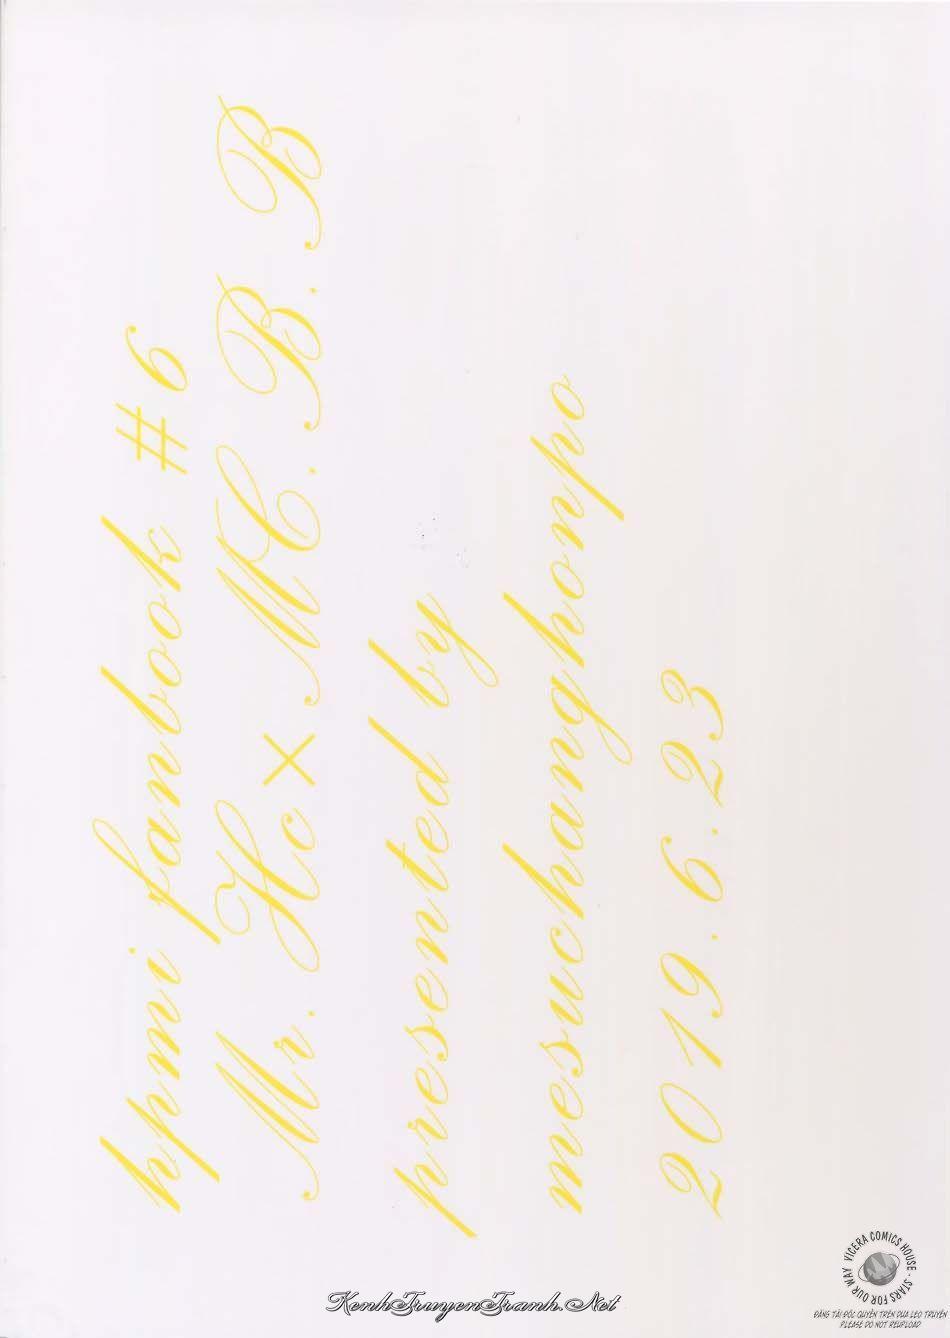 hpmi fanbook #6
Mr. Hc×MC. B. B
presented by
mesuchanghonpo
2019.6.23
VICERA COMICS HOUSE - STARS FOR OUR WAY
ĐĂNG TẢI ĐỘC QUYỀN TRÊN DƯA LEO TRUYỆN
PLEASE DO NOT REUPLOAD
KenhTruyenTranh.Net